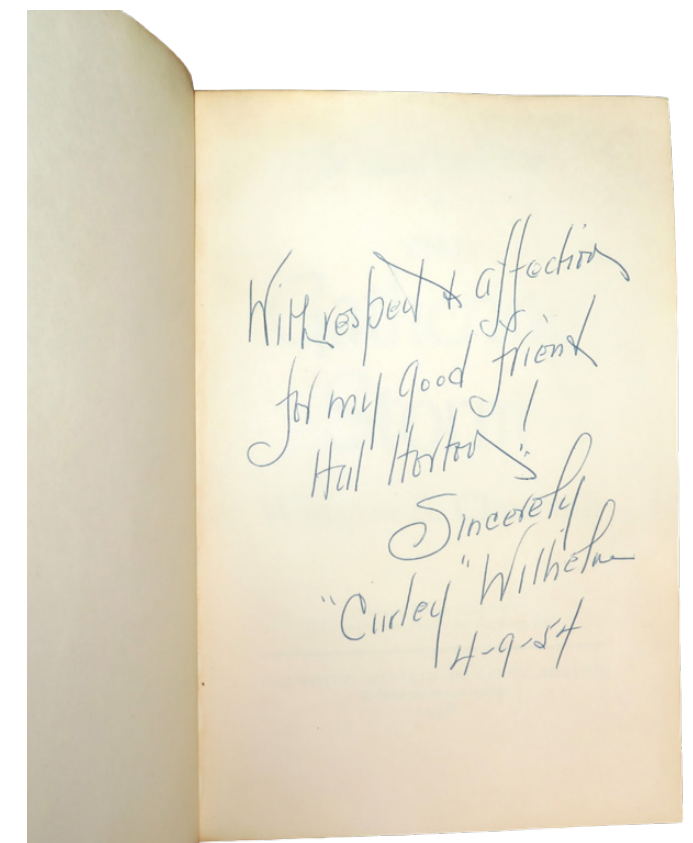 With respect & affection
for my good friend
Hal Horton!
Sincerely
"Curley" Wilhelm
4-9-54